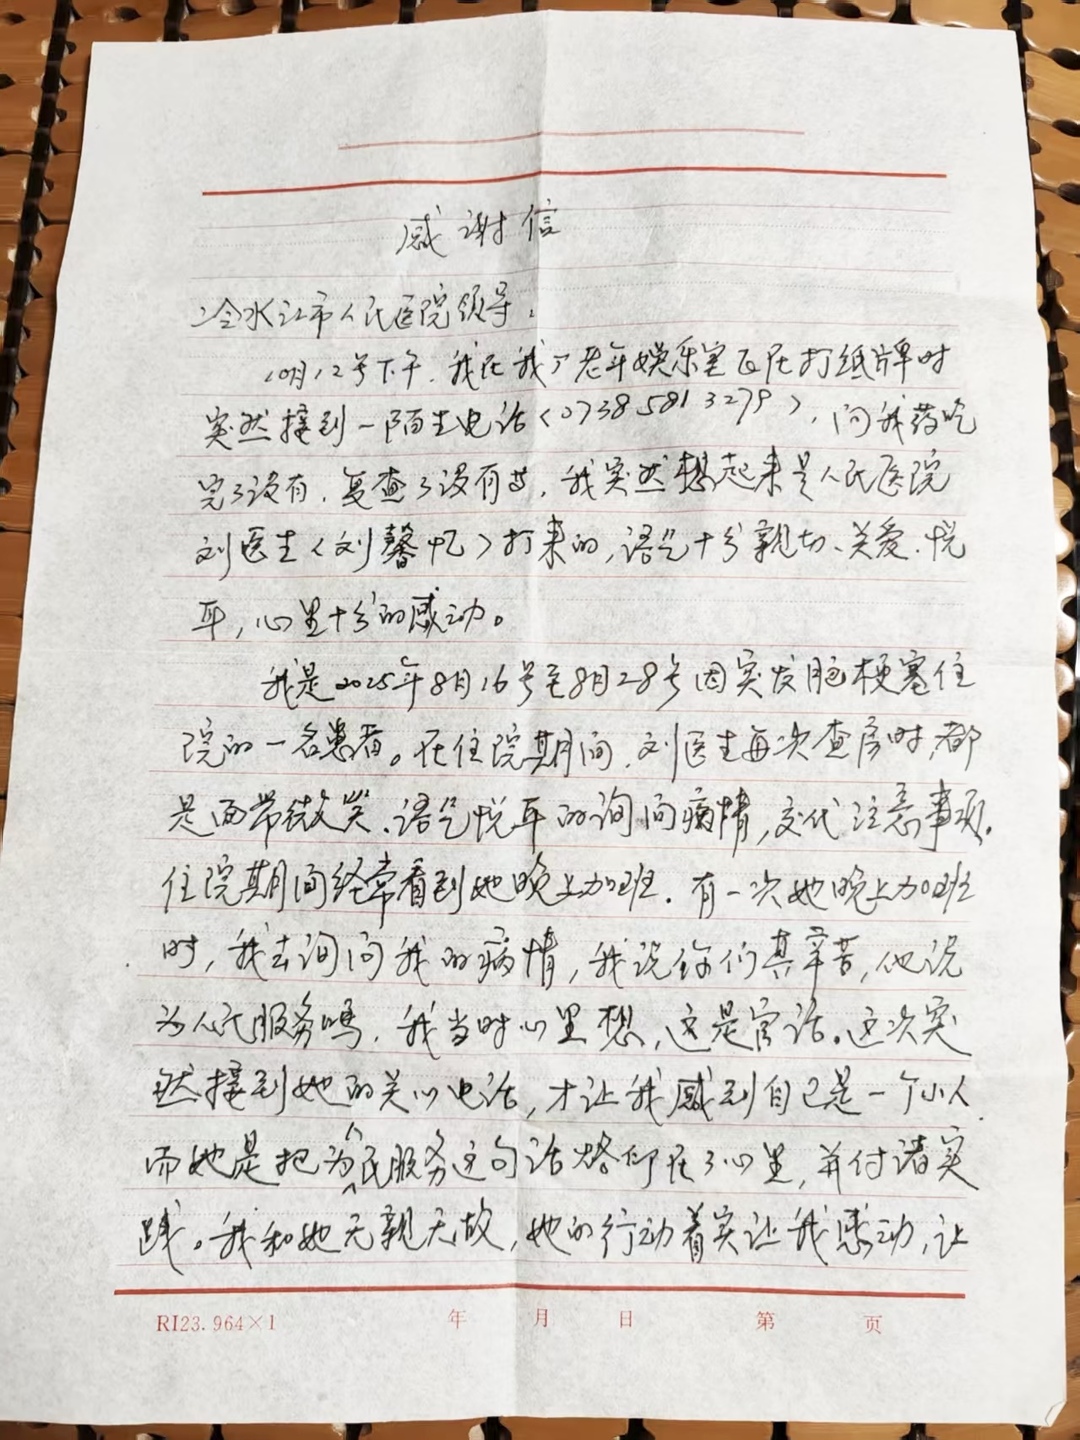 感谢信
冷水江市人民医院领导：
10月12号下午，我在我厂老年娱乐室正在打纸牌时
突然接到一陌生电话（07385813279），问我药吃
完了没有，复查了没有等，我突然想起来是人民医院
刘医生（刘馨忆）打来的，语气十分亲切、关爱、悦
耳，心里十分的感动。
我是2025年8月16号至8月28号因突发脑梗塞住
院的一名患者。在住院期间，刘医生每次查房时，都
是面带微笑、语气悦耳的询问病情，交代注意事项。
住院期间经常看到她晚上加班．有一次她晚上加班
时，我去询问我的病情，我说你们真辛苦，他说
为人民服务吗，我当时心里想，这是官话。这次突
然接到她的关心电话，才让我感到自己是一个小人，
而她是把为人民服务这句话烙印在了心里，并付诸实
践。我和她无亲无故，她的行动着实让我感动，让
RI23.964×1 年 月 日 第 页